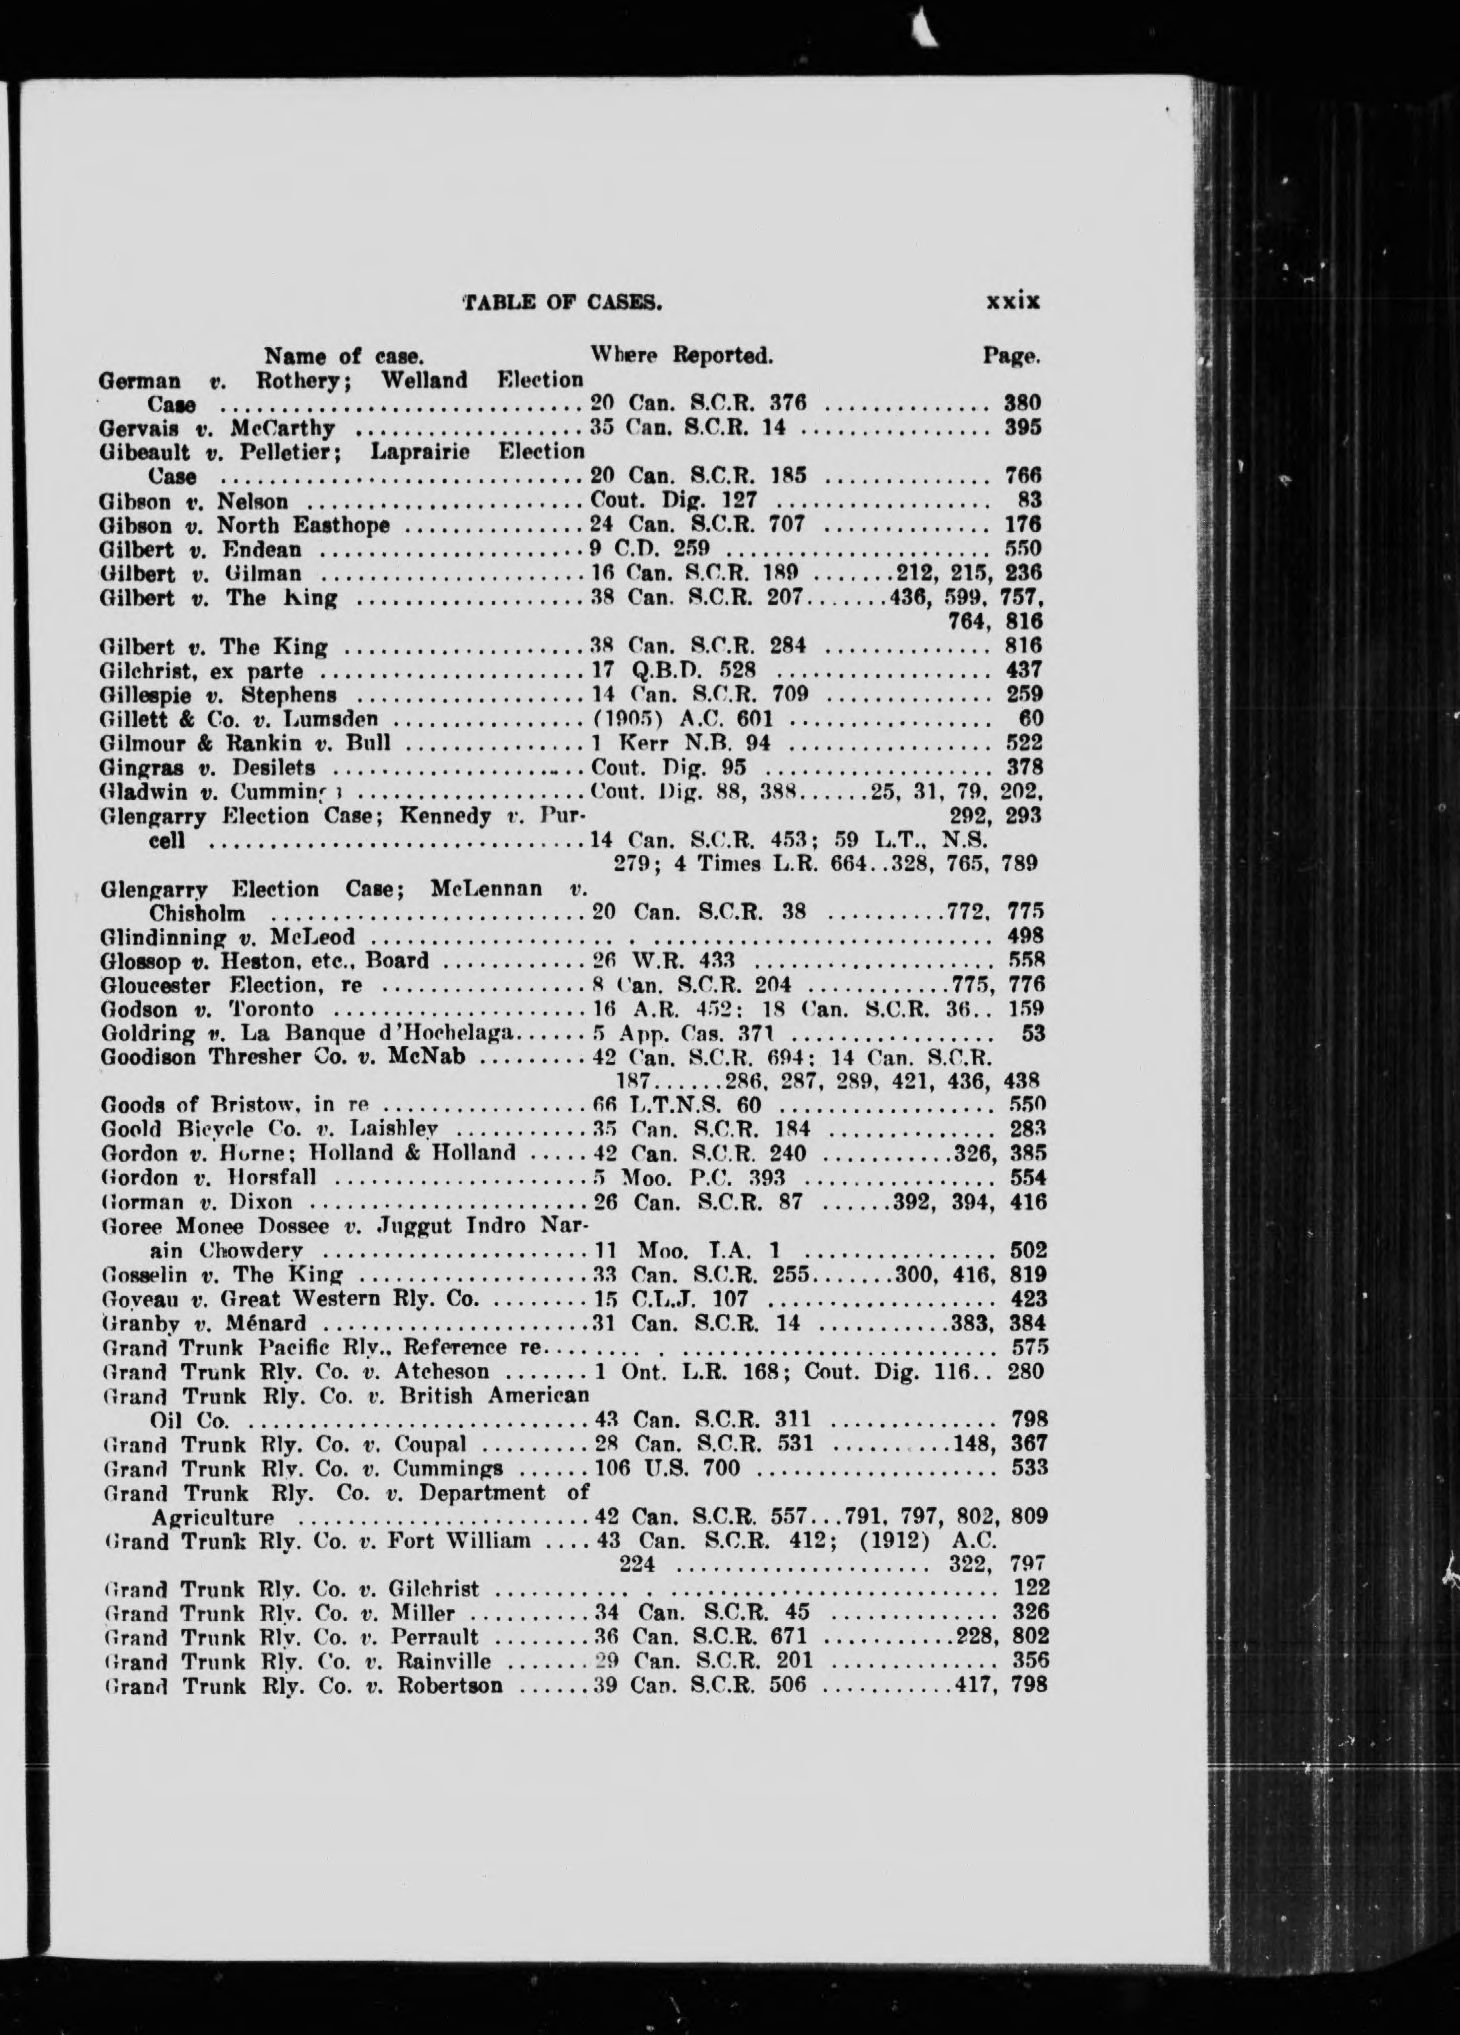 TABLE OF CASES. xxix
Name of case. Where Reported. Page.
German v. Rothery; Welland Election
Case .............................. 20 Can. S.C.R. 376 .............. 380
Gervais v. McCarthy ................... 35 Can. S.C.R. 14 ................ 395
Gibeault v. Pelletier; Laprairie Election
Case .............................. 20 Can. S.C.R. 185 .............. 766
Gibson v. Nelson ....................... Cout. Dig. 127 .................. 83
Gibson v. North Easthope ............... 24 Can. S.C.R. 707 .............. 176
Gilbert v. Endean ...................... 9 C.D. 259 ...................... 550
Gilbert v. Gilman ...................... 16 Can. S.C.R. 189 .......212, 215, 236
Gilbert v. The King ................... 38 Can. S.C.R. 207.......436, 599, 757,
764, 816
Gilbert v. The King .................... 38 Can. S.C.R. 284 .............. 816
Gilchrist, ex parte ...................... 17 Q.B.D. 528 .................. 437
Gillespie v. Stephens ................... 14 Can. S.C.R. 709 .............. 259
Gillett & Co. v. Lumsden ................ (1905) A.C. 601 ................. 60
Gilmour & Rankin v. Bull ............... 1 Kerr N.B. 94 ................. 522
Gingras v. Desilets ..................... Cout. Dig. 95 ................... 378
Gladwin v. Cumming ................... Cout. Dig. 88, 388......25, 31, 79, 202,
Glengarry Election Case; Kennedy v. Pur- 292, 293
cell ............................... 14 Can. S.C.R. 453; 59 L.T., N.S.
279; 4 Times L.R. 664..328, 765, 789
Glengarry Election Case; McLennan v.
Chisholm .......................... 20 Can. S.C.R. 38 ..........772, 775
Glindinning v. McLeod .................... . ............................ 498
Glossop v. Heston, etc., Board ............ 26 W.R. 433 .................... 558
Gloucester Election, re ................. 8 Can. S.C.R. 204 ............775, 776
Godson v. Toronto ..................... 16 A.R. 452; 18 Can. S.C.R. 36.. 159
Goldring v. La Banque d'Hochelaga...... 5 App. Cas. 371 ................. 53
Goodison Thresher Co. v. McNab ......... 42 Can. S.C.R. 694; 14 Can. S.C.R.
187......286, 287, 289, 421, 436, 438
Goods of Bristow, in re ................. 66 L.T.N.S. 60 .................. 550
Goold Bicycle Co. v. Laishley ........... 35 Can. S.C.R. 184 .............. 283
Gordon v. Horne; Holland & Holland ..... 42 Can. S.C.R. 240 ...........326, 385
Gordon v. Horsfall ..................... 5 Moo. P.C. 393 ................ 554
Gorman v. Dixon ....................... 26 Can. S.C.R. 87 ......392, 394, 416
Goree Monee Dossee v. Juggut Indro Nar-
ain Chowdery ...................... 11 Moo. I.A. 1 ................ 502
Gosselin v. The King ................... 33 Can. S.C.R. 255.......300, 416, 819
Goyeau v. Great Western Rly. Co. ........ 15 C.L.J. 107 ................... 423
Granby v. Ménard ...................... 31 Can. S.C.R. 14 ...........383, 384
Grand Trunk Pacific Rly., Reference re........ . .......................... 575
Grand Trunk Rly. Co. v. Atcheson ....... 1 Ont. L.R. 168; Cout. Dig. 116.. 280
Grand Trunk Rly. Co. v. British American
Oil Co. ............................ 43 Can. S.C.R. 311 .............. 798
Grand Trunk Rly. Co. v. Coupal ......... 28 Can. S.C.R. 531 ..........148, 367
Grand Trunk Rly. Co. v. Cummings ...... 106 U.S. 700 .................... 533
Grand Trunk Rly. Co. v. Department of
Agriculture ........................ 42 Can. S.C.R. 557...791, 797, 802, 809
Grand Trunk Rly. Co. v. Fort William .... 43 Can. S.C.R. 412; (1912) A.C.
224 ..................... 322, 797
Grand Trunk Rly. Co. v. Gilchrist ........... . ........................... 122
Grand Trunk Rly. Co. v. Miller .......... 34 Can. S.C.R. 45 .............. 326
Grand Trunk Rly. Co. v. Perrault ........ 36 Can. S.C.R. 671 ...........228, 802
Grand Trunk Rly. Co. v. Rainville ....... 29 Can. S.C.R. 201 .............. 356
Grand Trunk Rly. Co. v. Robertson ...... 39 Can. S.C.R. 506 ...........417, 798